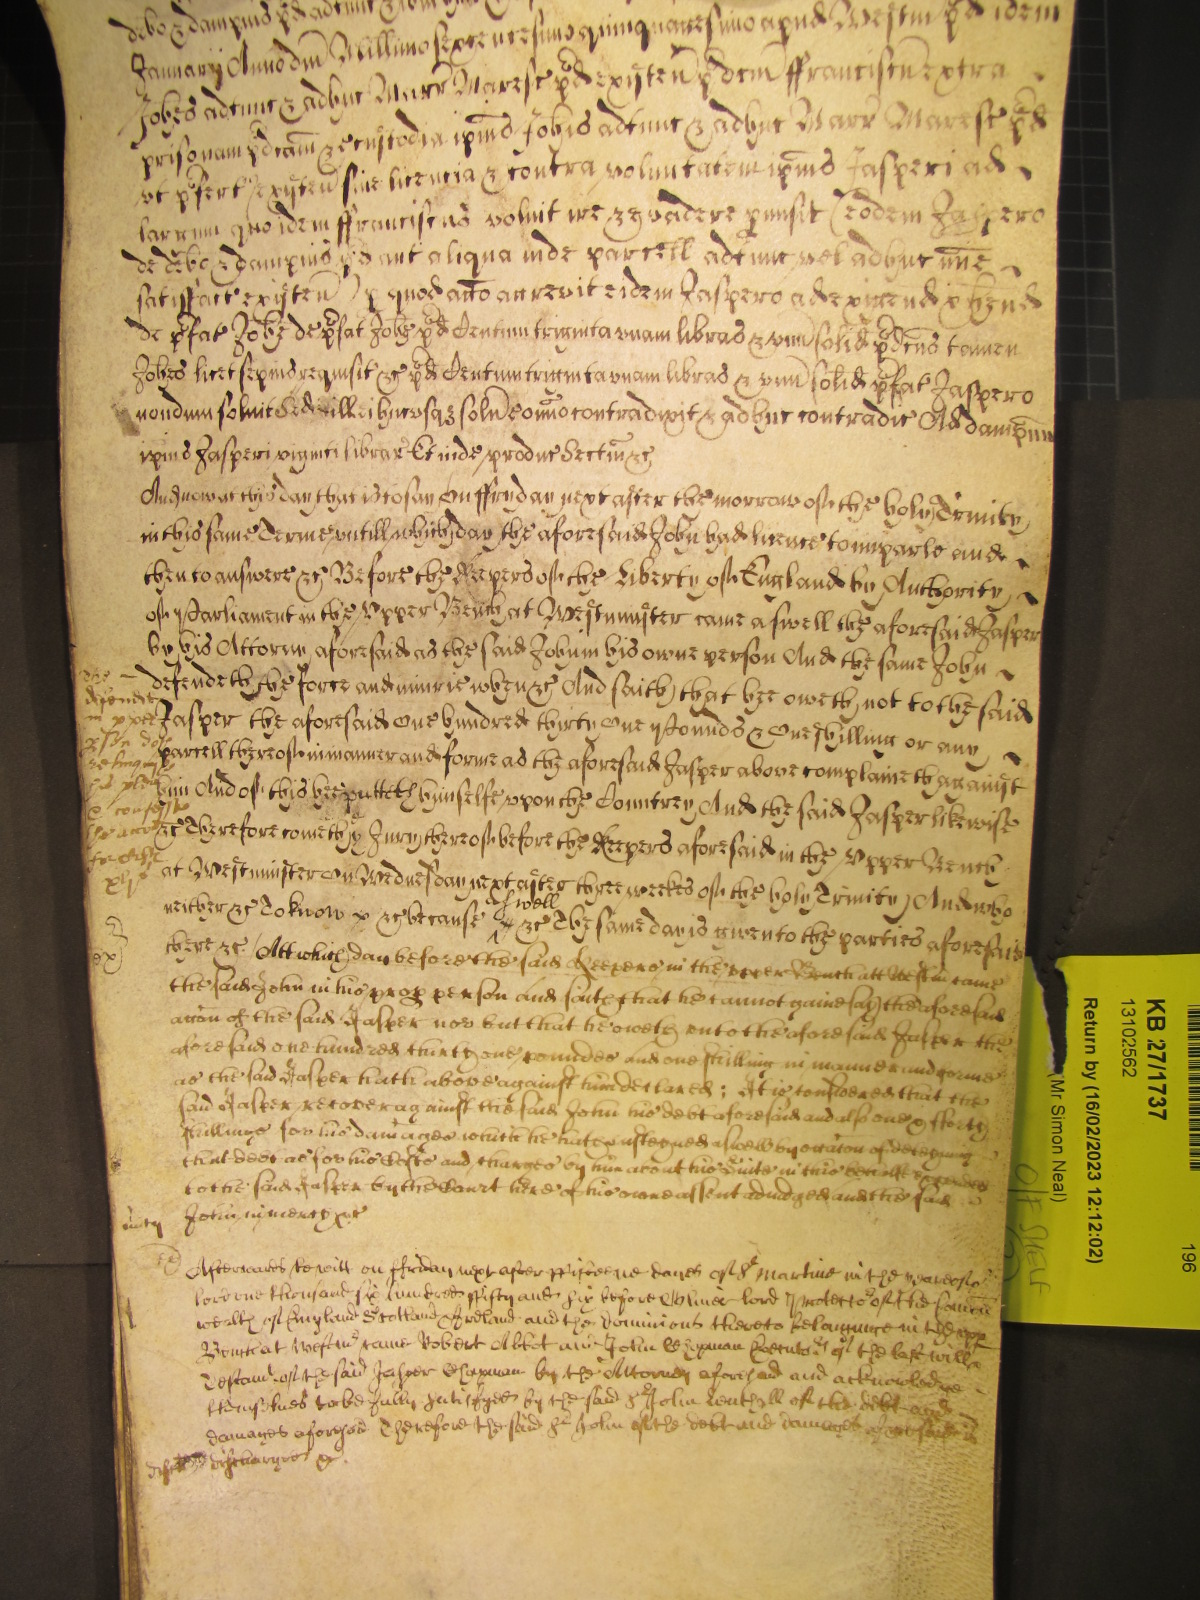 debo & dampnis pd adtunc & adhuc
Januarij Anno dm Millimo sexcentesimo quinquagesimo apud Westm pd idem
Johes adtunc & adhuc Marr Marese pd existen pdcm ffranciscu extra
prisonam pdcam & custodia ipius Johis adtunc & adhuc Marr Marese pd
vt pfert existen sine licencia & contra voluntatem ipius Jasperi ad
largum quo idem ffranciscus voluit ire & evadere pmisit Eodem Jaspero
de debo & dampnis pd aut aliqua inde parcell adtunc vel adhuc mie
satisfact existen p quod acco accrevit eidem Jaspero ad exigend & hend
de pfat Johe de pfat Johe pd Centum triginta vnam libras & vnu solid pdcus tamen
Johes licet sepius requisit &c pd Centum triginta vnam libras & vnu solid pfat Jaspero
nondum solvit Sed ill ei hucusq3 solve omo contradixit & adhuc contradic Ad dampnu
ipius Jasperi viginti librar Et inde produc Sectam &c
And now at this day that is to say On ffryday next after the morrow of the holy Trinity
in this same Terme vntill which day the aforesaid John had licence to imparle and
then to answere &c Before the Keepers of the Liberty of England by Authority
of Parliament in the Vpper Bench at Westminster came aswell the aforesaid Jasper
by his Attorny aforesaid as the said John in his owne person And the same John
defendeth the force and iniurie when &c And saith that hee oweth not to the said
Jasper the aforesaid One hundred thirty One Pounds & One shilling or any
parcell thereof in manner and forme as the aforesaid Jasper above complaineth against
him And of this hee putteth himselfe vpon the Countrey And the said Jasper likewise
&c Therefore come thy Jury thereof before the Keepers aforesaid in the Vpper Bench
at Westminster On Wednesday next after three weekes of the holy Trinity And who
neither &c To know &c because aswell &c The same day is given to the parties aforesaid
there &c Att which day before the said Keepers in the vpper Bench att Westm came
the said John in his prop person and saith that he cannot gainesay the aforesaid
accon of the said Jasper nor but that he oweth vnto the aforesaid Jasper the
aforesaid one hundred thirty one poundes and one shilling in manner and forme
as the said Jasper hath above against him declared; It is considered that the
said Jasper recover against the said John his debt aforesaid and also
shillings for his damages which he hath susteyned aswell by occasion of deteyning
that debt as for his Costs and charges by him about his Suite in this behalfe
to the said Jasper by the Court here of his owne assent adiudged and the said
John in mercy &c
Afterwards to witt on ffriday next after ffifteene dayes of St Martine in the yeare of or
lord one thousand six hundred ffifty and six before Oliver lord Protector of the Comon
wealth of England Scotland & Ireland and the Dominions thereto belonginge in the vpp
Bench at Westmr came Robert Abbot and John Chapman Executors of the last will &
Testamt of the said Jasper Chapman by the Attorney aforesaid and acknowledge
themselves to be fully satisfyed by the said Sr John Lenthall of the debt and
damages aforesaid Therefore the said Sr John of the debt and damages aforesaid is
discharged &c.
KB 27/1737
13102562
Return by (16/02/2023 12:12:02)
(Mr Simon Neal)
196
O/F SHELF